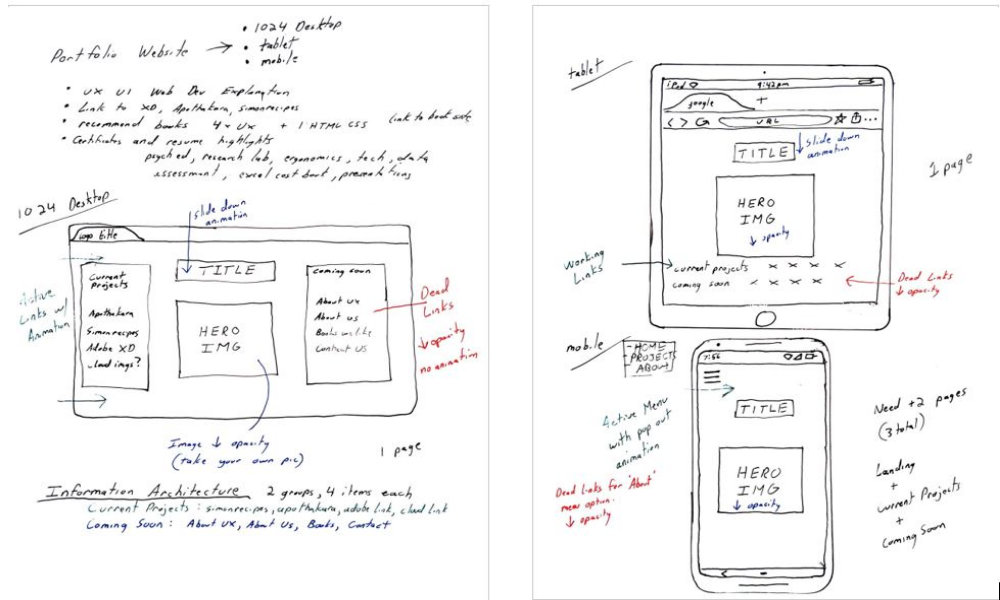 Portfolio Website →
• 1024 Desktop
• tablet
• mobile
• UX UI Web Dev Explanation
• Link to XD, Apothakura, simonrecipes
• recommend books 4x UX + 1 HTML CSS link to book site
• Certificates and resume highlights
psyched, research lab, ergonomics, tech, data
assessment, excel cost book, presentations
1024 Desktop
slide down
animation
logo title
Current
Projects
Apothakura
Simonrecipes
Adobe XD
cloud imgs?
Active
Links w/
Animation
TITLE
HERO
IMG
coming soon
About UX
About us
Books we like
Contact US
Dead
Links
↓ opacity
no animation
Image ↓ opacity
(take your own pic)
1 page
Information Architecture 2 groups, 4 items each
Current Projects : simonrecipes, apothakura, adobe link, cloud link
Coming Soon : About UX, About Us, Books, Contact
tablet
iPad 9:42pm
google +
< > URL ...
TITLE
↓ Slide down
animation
HERO
IMG
↓ opacity
1 page
working
Links
current projects x x x x
coming soon x x x x
Dead Links
↓ opacity
mobile
- HOME
- PROJECTS
- ABOUT
7:56
TITLE
Active Menu
with pop out
animation
HERO
IMG
↓ opacity
Dead links for 'About'
menu option.
↓ opacity
Need +2 pages
(3 total)
Landing
+
current Projects
+
Coming Soon